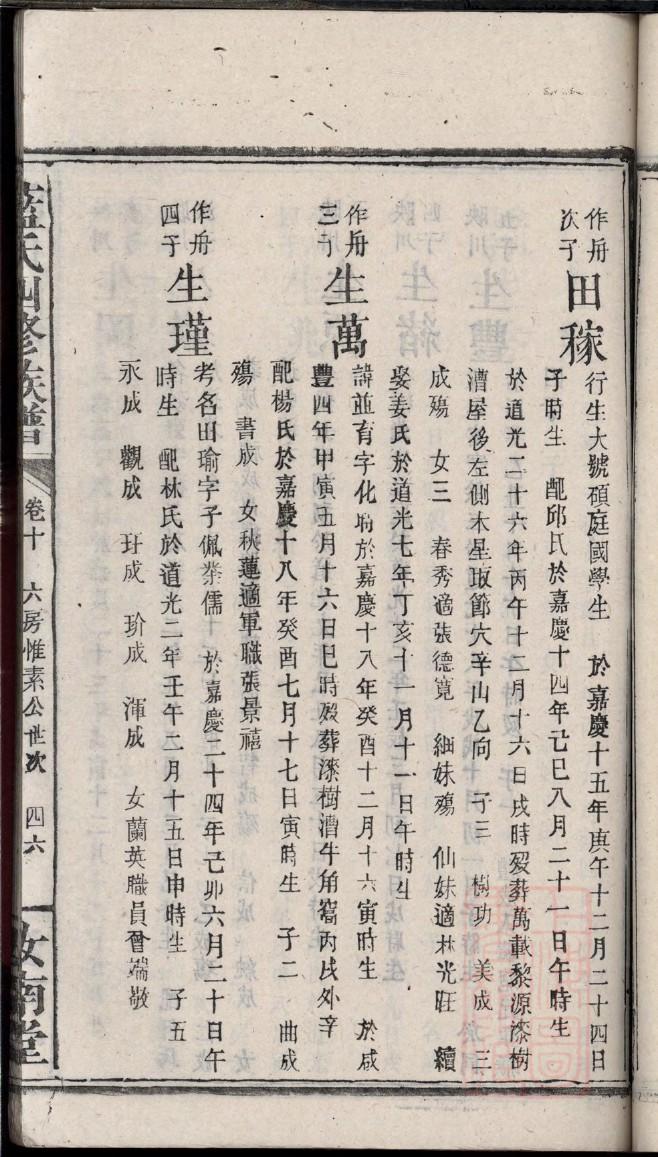 作舟
次子
田稼
行生大號碩庭國學生　於嘉慶十五年庚午十二月二十四日
子時生　配邱氏於嘉慶十四年己巳八月二十一日午時生
於道光二十六年丙午十二月十六日戌時歿葬萬載黎源漆樹
漕屋後左側木星取節穴辛山乙向　子三　樹功　美成　三
成殤　女三　春秀適張德寬　細妹殤　仙妹適林光旺　續
娶姜氏於道光七年丁亥十一月十一日午時生
作舟
三子
生萬
諱並育字化〓於嘉慶十八年癸酉十二月十六寅時生　於咸
豐四年甲寅五月十六日巳時歿葬漆樹漕牛角窩丙戌外辛
配楊氏於嘉慶十八年癸酉七月十七日寅時生　子二　曲成
殤　書成　女秋蓮適軍職張景禧
作舟
四子
生瑾
考名田瑜字子佩業儒　於嘉慶二十四年己卯六月二十日午
時生　配林氏於道光二年壬午二月十五日申時生　子五
永成　觀成　玨成　玠成　渾成　女蘭英職員曾端敬
藍氏四修族譜
卷十　六房惟素公世次　四六
汝南堂